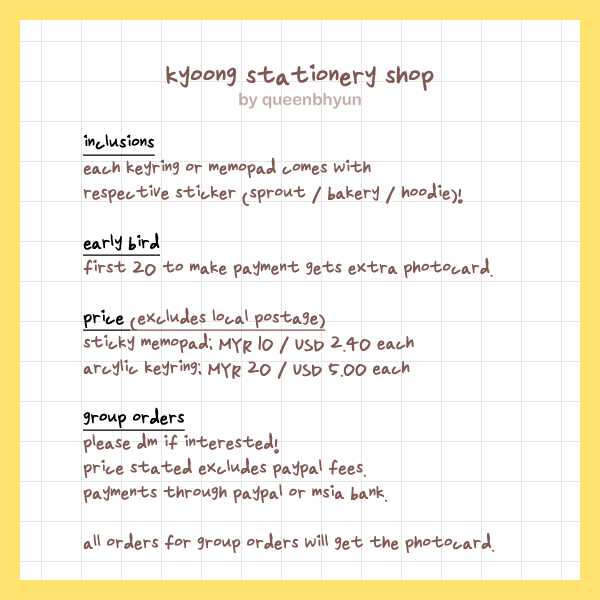 kyoong stationery shop
by queenbhyun
inclusions
each keyring or memopad comes with
respective sticker (sprout / bakery / hoodie)!
early bird
first 20 to make payment gets extra photocard.
price (excludes local postage)
sticky memopad: MYR 10 / USD 2.40 each
arcylic keyring: MYR 20 / USD 5.00 each
group orders
please dm if interested!
price stated excludes paypal fees.
payments through paypal or msia bank.
all orders for group orders will get the photocard.